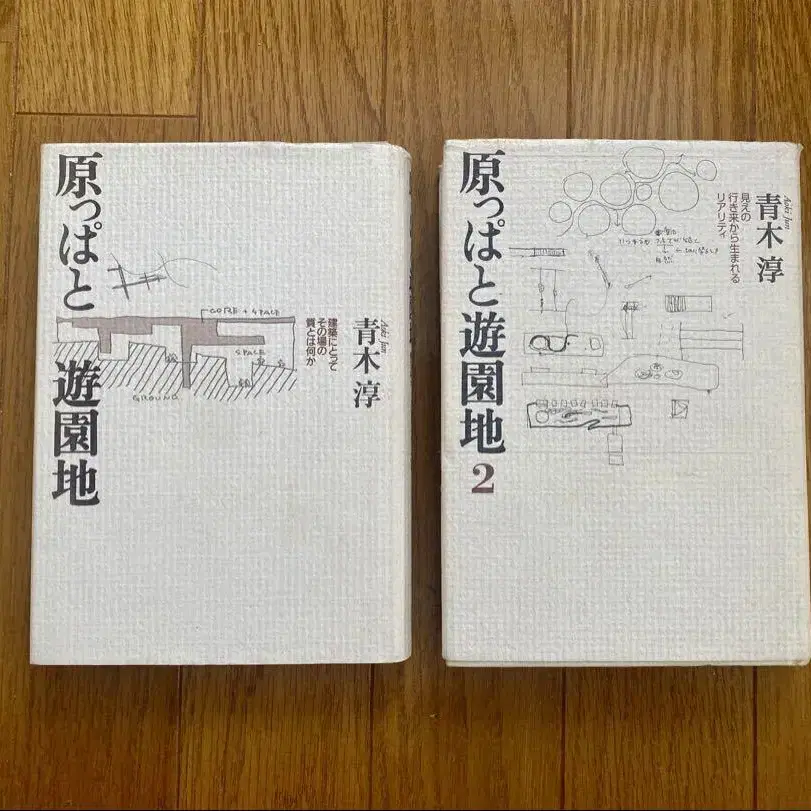 原っぱと
遊園地
CORE + SPACE
SPACE
GROUND
建築にとって
その場の
質とは何か
青木 淳
Aoki Jun
原っぱと遊園地2
見えの
行き来から生まれる
リアリティ
青木 淳
Aoki Jun